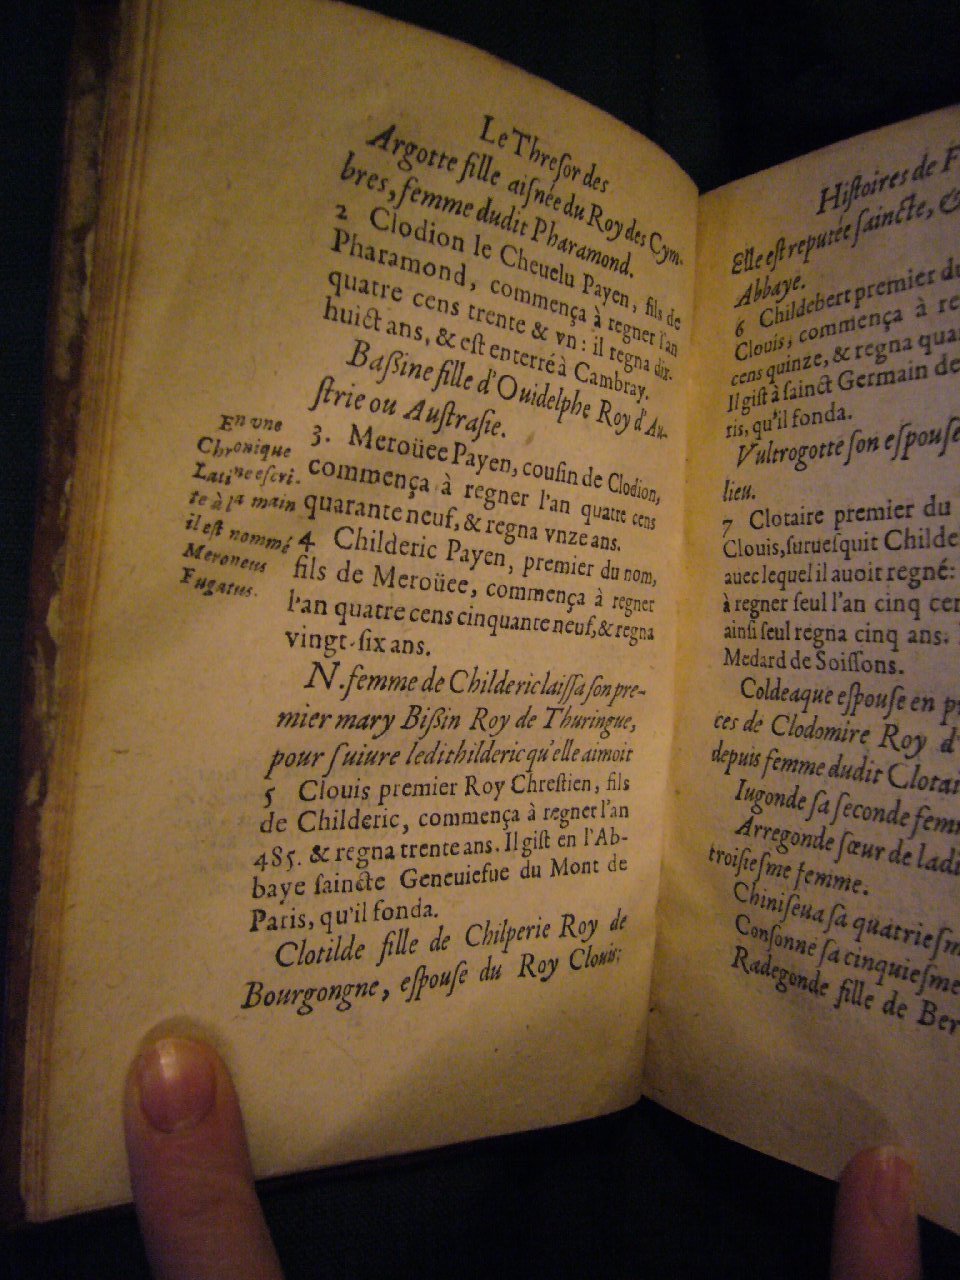 Le Thresor des
Argotte fille aisnée du Roy des Cym-
bres, femme dudit Pharamond.
2 Clodion le Cheuelu Payen, fils de
Pharamond, commença à regner l'an
quatre cens trente & vn: il regna dix-
huict ans, & est enterré à Cambray.
Baßine fille d'Ouidelphe Roy d'Au-
strie ou Austrasie.
3. Meroüee Payen, cousin de Clodion,
commença à regner l'an quatre cens
quarante neuf, & regna vnze ans.
4 Childeric Payen, premier du nom,
fils de Meroüee, commença à regner
l'an quatre cens cinquante neuf, & regna
vingt-six ans.
N. femme de Childeric laissa son pre-
mier mary Bißin Roy de Thuringue,
pour suiure ledit hilderic qu'elle aimoit
5 Clouis premier Roy Chrestien, fils
de Childeric, commença à regner l'an
485. & regna trente ans. Il gist en l'Ab-
baye saincte Geneuiefue du Mont de
Paris, qu'il fonda.
Clotilde fille de Chilperic Roy de
Bourgongne, espouse du Roy Clouis:
En vne
Chronique
Latine escri-
te à la main
il est nommé
Meroneus
Fugatus.
Histoires de F
Elle est reputée saincte, &
Abbaye.
6 Childebert premier du
Clouis, commença à re
cens quinze, & regna qua
Il gist à sainct Germain de
ris, qu'il fonda.
Vultrogotte son espouse
lieu.
7 Clotaire premier du
Clouis, suruesquit Childe
auec lequel il auoit regné:
à regner seul l'an cinq cen
ainsi seul regna cinq ans.
Medard de Soissons.
Coldeaque espouse en p
ces de Clodomire Roy d'
depuis femme dudit Clotai
Iugonde sa seconde femm
Arregonde sœur de ladi
troisiesme femme.
Chiniseua sa quatriesm
Consonne sa cinquiesme
Radegonde fille de Ber